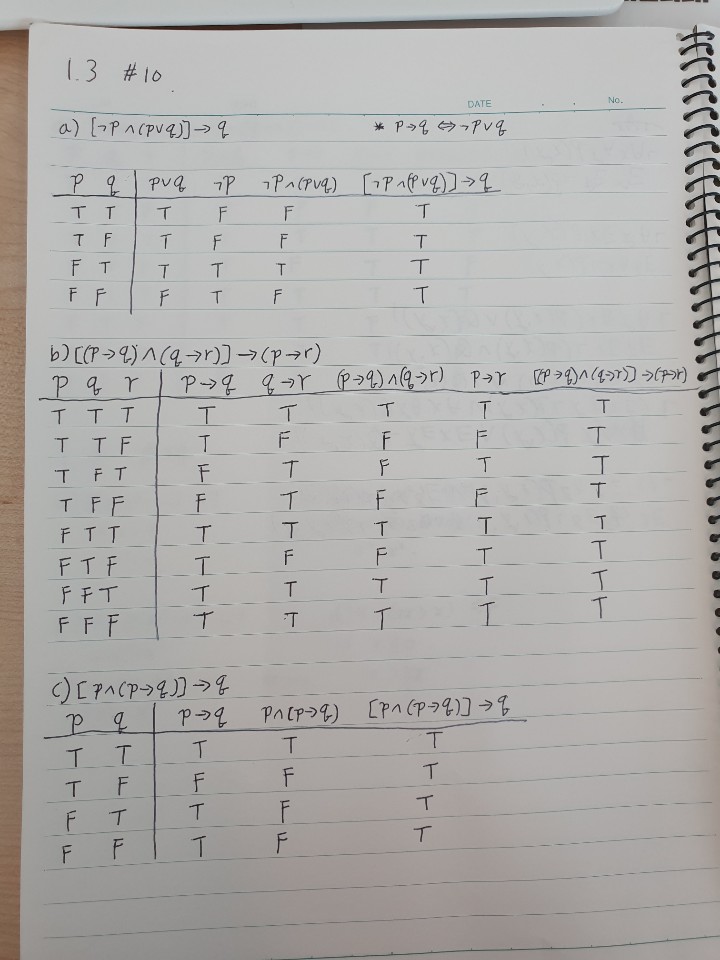 1.3 #10
DATE . . No.
a) [¬p∧(p∨q)]→q * p→q ⇔ ¬p∨q
p q p∨q ¬p ¬p∧(p∨q) [¬p∧(p∨q)]→q
T T T F F T
T F T F F T
F T T T T T
F F F T F T
b) [(p→q)∧(q→r)]→(p→r)
p q r p→q q→r (p→q)∧(q→r) p→r [(p→q)∧(q→r)]→(p→r)
T T T T T T T T
T T F T F F F T
T F T F T F T T
T F F F T F F T
F T T T T T T T
F T F T F F T T
F F T T T T T T
F F F T T T T T
c) [p∧(p→q)]→q
p q p→q p∧(p→q) [p∧(p→q)]→q
T T T T T
T F F F T
F T T F T
F F T F T